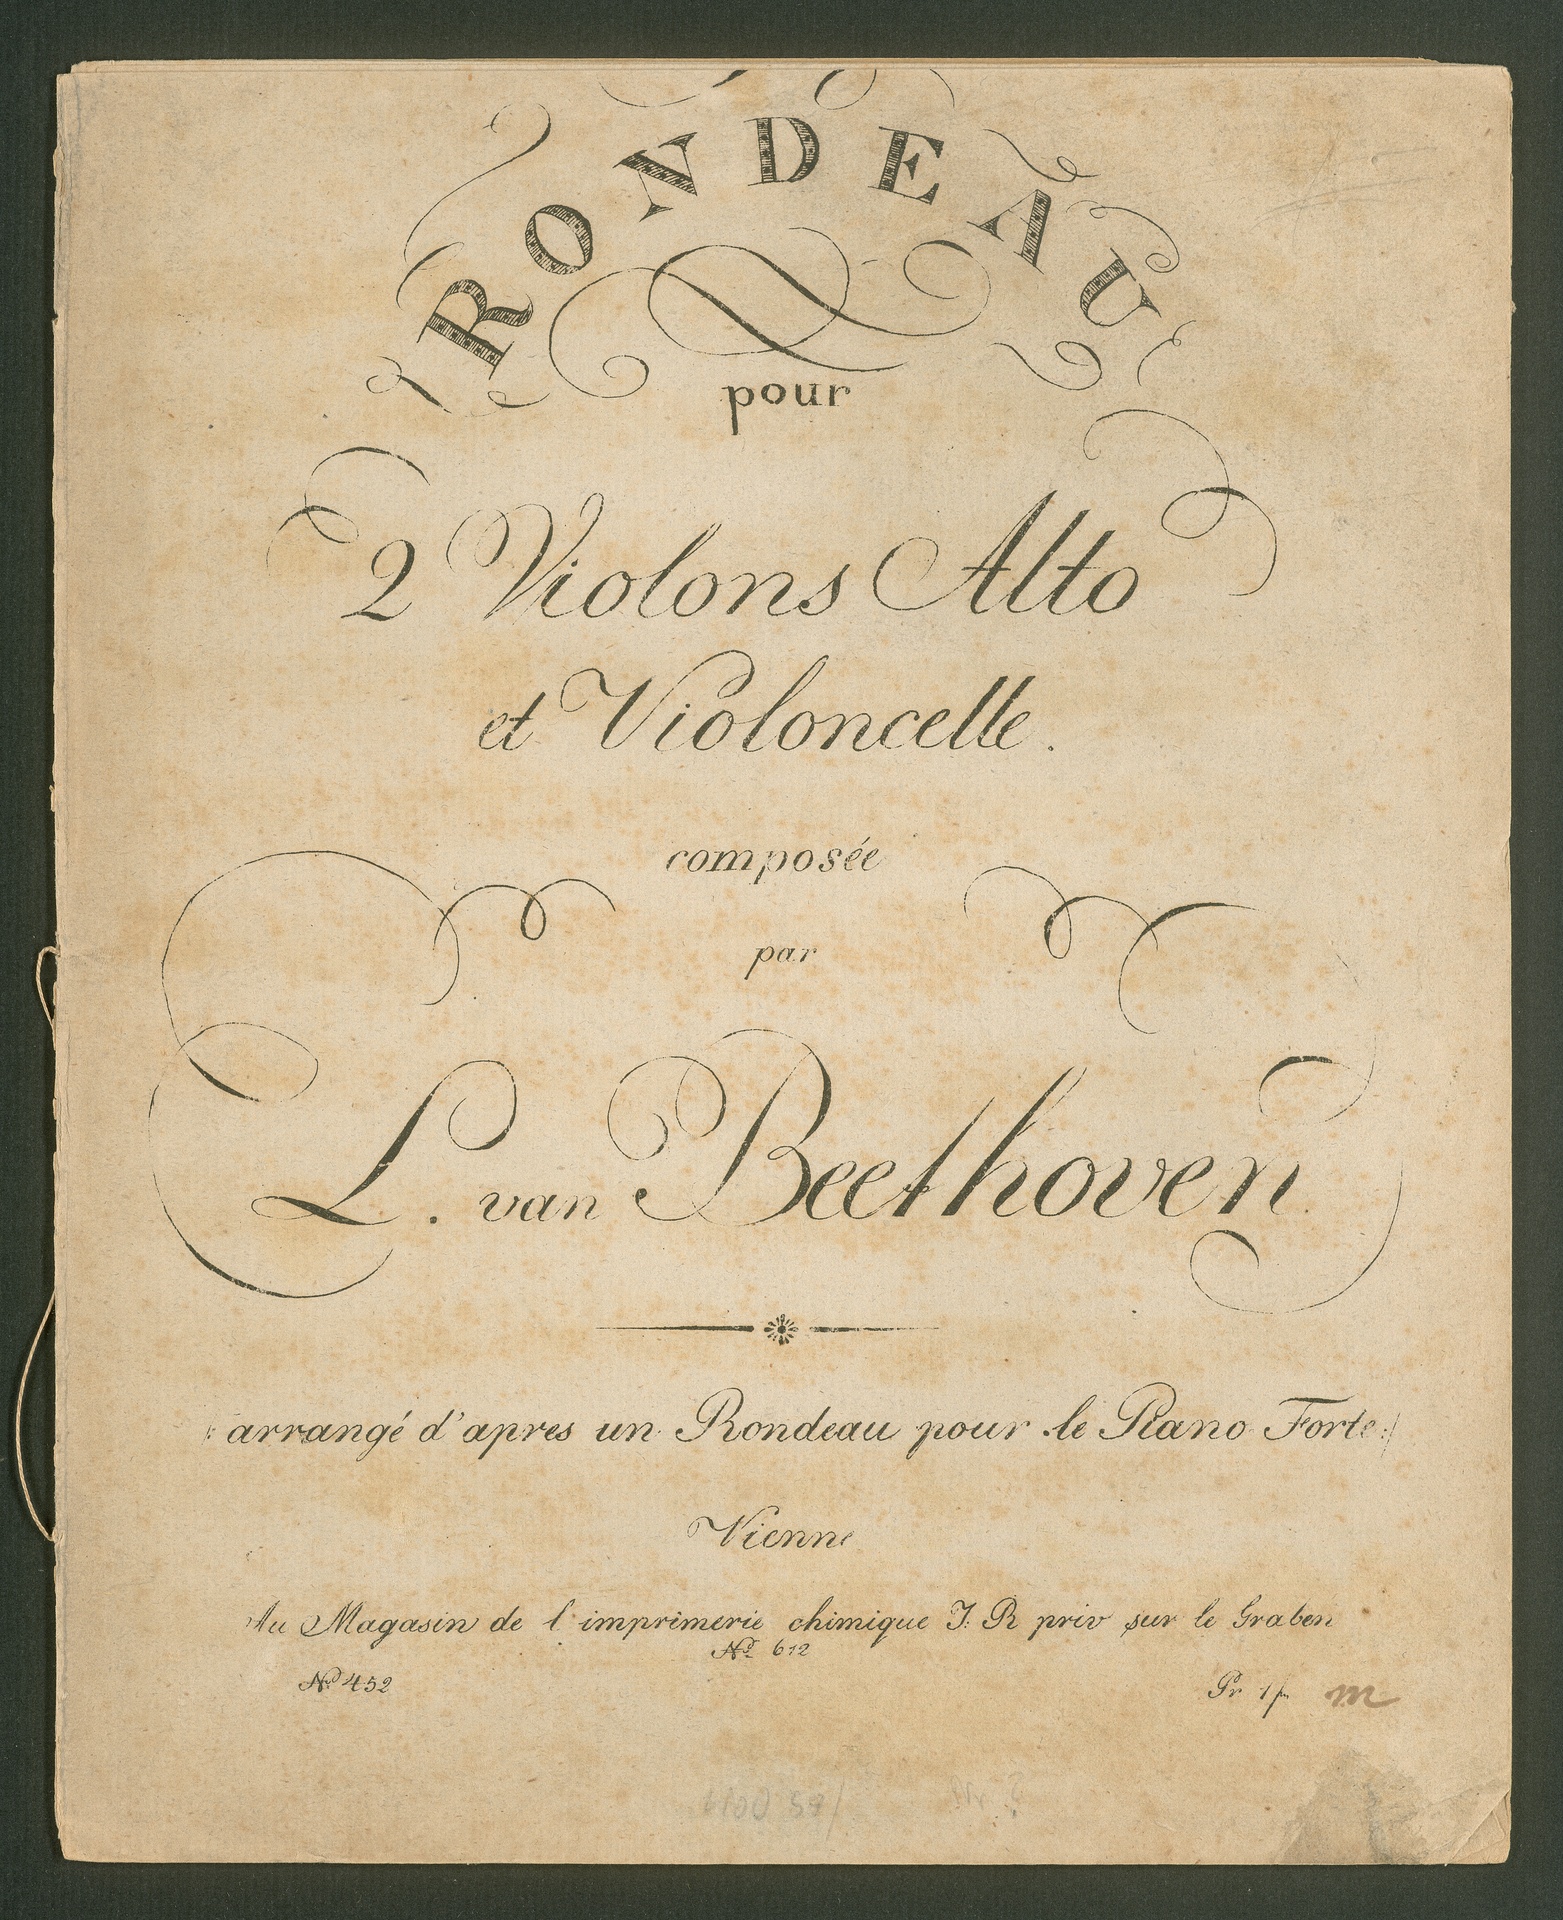 RONDEAU
pour
2 Violons Alto
et Violoncelle.
composée
par
L. van Beethoven
arrangé d'apres un Rondeau pour le Piano Forte:/
Vienne
Au Magasin de l'imprimerie chimique I: R priv sur le Graben
No 612
No 452
Pr 1f m